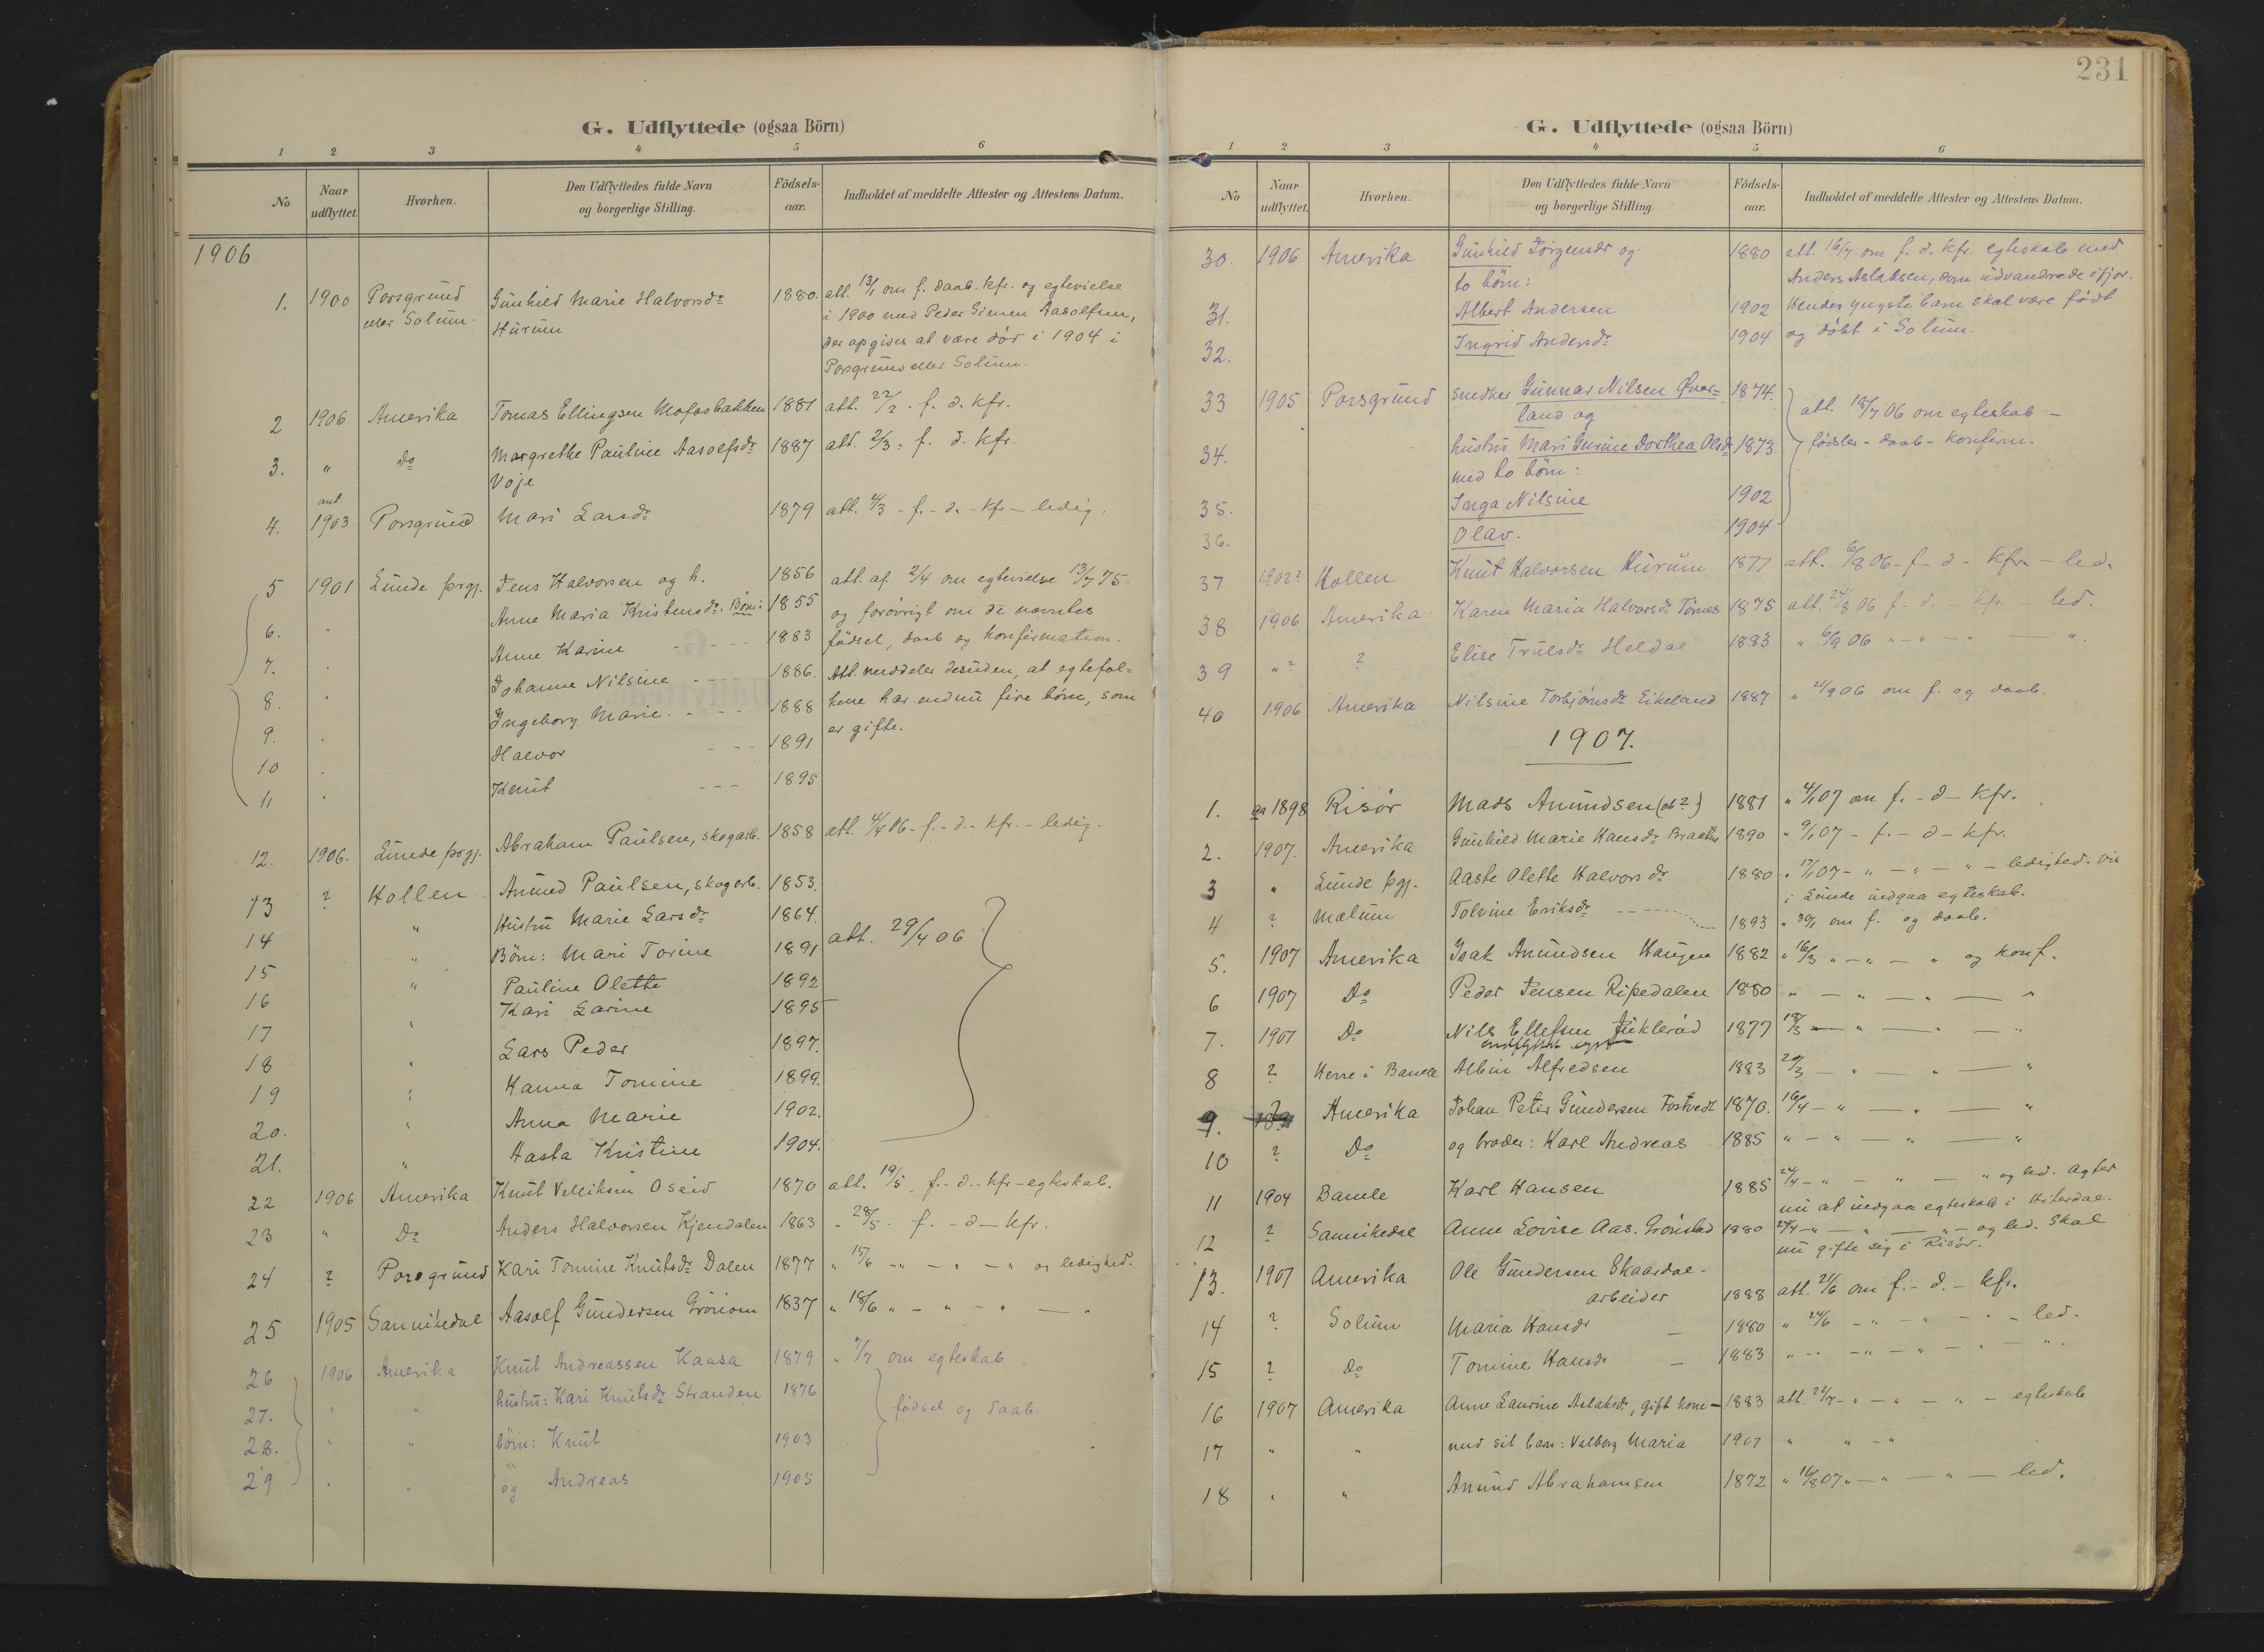 G. Udflyttede (ogsaa Börn)
1 2 3 4 5 6
No. Naar udflyttet. Hvorhen. Den Udflyttedes fulde Navn og borgerlige Stilling. Födsels-aar. Indholdet af meddelte Attester og Attestens Datum.
1906
1. 1900 Porsgrund Gunhild Marie Halvorsdr 1880. att. 13/1 om f. daab. kfr. og egtevielse
eller Solum. Hurum i 1900 med Peder Simen Aasolfsen,
der opgives at være död i 1904 i
Porsgrund eller Solum.
2 1906 Amerika Tomas Ellingsen Mofosbakken 1881 att. 22/2 - f. d. kfr.
3. " Do Margrethe Pauline Aasolfsdr 1887 att. 2/3 - f. d. kfr.
Voje
ant.
4. 1903 Porsgrund Mari Larsdr 1879 att. 4/3 - f. - d. - kfr - ledig.
5 1901 Lunde prgj. Jens Halvorsen og h. 1856 att. af 2/4 om egtevielse 13/7 75.
6. Anne Maria Kristensdr. Börn: 1855 og forövrigt om de nævntes
7. Anne Karine - - - 1883 födsel, daab og konfirmation.
8. Johanne Nilsine - - 1886. Att. meddeler desuden, at egtefol=
9. Ingeborg Marie. - - - 1888 kene har endnu fire börn, som
10 Halvor - - - 1891 er gifte.
11 Knut - - - 1895
12. 1906. Lunde prgj. Abraham Paulsen, skogarb. 1858 att. 4/4 06 - f. - d. - kfr. - ledig.
13 ? Hollen Anund Paulsen, skogarb. 1853.
14 " Hustru Marie Larsdr 1864. att. 29/4 06
15 " Börn: Mari Torine 1891
16 " Pauline Olette 1892
17 " Kari Larine 1895
18 " Lars Peder 1897.
19 " Hanna Tomine 1899.
20. " Anna Marie 1902.
21. " Aasta Kristine 1904.
22 1906 Amerika Knut Velliksen Oseid 1870 att. 19/5 f. - d. - kfr - egteskab.
23 " Do Anders Halvorsen Kjendalen 1863 " 28/5 - f. - d - kfr.
24 ? Porsgrund Kari Tomine Knutsdr Dalen 1877 " 15/6 - " - " - " og ledighed.
25 1905 Sannikedal Aasolf Gundersen 1837 " 18/6 " - " - " - "
26 1906 Amerika Knut Andreassen Kaasa 1879 " 7/7 om egteskab
27. " " hustru: Kari Knutsdr Stranden 1876 födsel og daab.
28. " " börn: Knut 1903
29 " " og Andreas 1905
231
G. Udflyttede (ogsaa Börn)
1 2 3 4 5 6
No Naar udflyttet. Hvorhen. Den Udflyttedes fulde Navn og borgerlige Stilling. Födsels-aar. Indholdet af meddelte Attester og Attestens Datum.
30. 1906 Amerika Gunhild Jörgensdr og 1880 att. 16/7 om f. d. kfr. egteskab med
to börn: Anders Aslaksen, som udvandrede ifjor.
31. Albert Andersen 1902 Hendes yngste barn skal være födt
32. Ingrid Andersdr 1904 og döbt i Solum.
33 1905 Porsgrund snedker Gunnar Nilsen Över= 1874.
land og att. 18/7 06 om egteskab -
34. hustru Mari Gurine Dorthea Olsdr 1873 födsler - daab - konfirm.
med to börn:
35. Inga Nilsine 1902
36. Olav. 1904
37 1902? Hollen Knut Halvorsen Hurum 1877 att. 6/8 06 - f - d - kfr. - led.
38 1906 Amerika Karen Maria Halvorsdr Törnes 1875 att. 24/8 06 f - d. - kfr. - led.
39 "? ? Elise Trulsdr Heldal 1883 " 6/9 06 " - " - " - ".
40 1906 Amerika Nilsine Torbjörnsdr Eikeland 1887 " 21/9 06 om f. og daab.
1907.
1. ca 1898 Risör Mads Anundsen (ob?) 1881 " 4/1 07 om f. - d - kfr.
2. 1907. Amerika Gunhild Marie Hansdr Braaten 1890 " 9/1 07 - f. - d - kfr.
3 " Lunde pgj. Aaste Olette Halvorsdr 1880 " 17/1 07 - " - " - " - ledighed. Vil
i Lunde indgaa egteskab.
4 ? Mælum Tolvine Eriksdr - - - - 1893 " 30/1 om f. og daab.
5. 1907 Amerika Isak Anundsen Haugen 1882 " 16/3 " - " - " og konf.
6 1907 Do Peder Jensen Ripedalen 1880 " - " - " - "
7. 1907 Do Nils Ellefsen Jukleröd 1877 18/3 - " - " - "
8 ? Herre i Bamle Albin Alfredsen 1883 20/3 - " - " - "
9. Amerika Johan Peter Gundersen Fostvedt 1870. 16/4 - " - " - "
10 ? Do og broder: Karl Andreas 1885 " - " - " - "
11 1904 Bamle Karl Hansen 1885 24/4 - " - " - " og led. Agter
nu at indgaa egteskab i Hiterdal.
12 ? Sannikedal Anne Lovise Aas. Grönstad 1880 27/4 - " - " - " - og led. Skal
nu gifte sig i Risör.
13. 1907 Amerika Ole Gundersen Skaardal -
arbeider 1888 att. 21/6 om f. - d. - kfr.
14 ? Solum Maria Hansdr - 1880 " 24/6 - " - " - " - led.
15 ? Do Tomine Hansdr - 1883 " - " - " - " - ".
16 1907 Amerika Anne Laurine Aslaksdr, gift kone - 1883 att. 22/7 - " - " - " - egteskab
17 " " med sit barn: Valborg Maria 1907 " " - "
18 " " Anund Abrahamsen 1872 " 16/8 07 " - " - " - led.